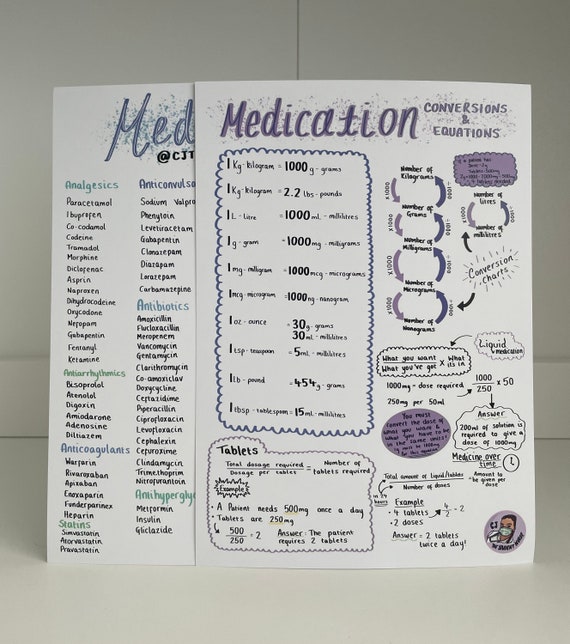 Med
@CJT
Analgesics
Paracetamol
Ibuprofen
Co-codamol
Codeine
Tramadol
Morphine
Diclofenac
Asprin
Naproxen
Dihydrocodeine
Oxycodone
Nefopam
Gabapentin
Fentanyl
Ketamine
Antiarrhythmics
Bisoprolol
Atenolol
Digoxin
Amiodarone
Adenosine
Diltiazem
Anticoagulants
Warfarin
Rivaroxaban
Apixaban
Enoxaparin
Funderparinex
Heparin
Statins
Simvastatin
Atorvastatin
Pravastatin
Anticonvulsa
Sodium Valpro
Phenytoin
Levetiracetam
Gabapentin
Clonazepam
Diazapam
Lorazepam
Carbamazepine
Antibiotics
Amoxicillin
Flucloxacillin
Meropenem
Vancomycin
Gentamycin
Clarithromycin
Co-amoxiclav
Doxycycline
Ceftazidime
Piperacillin
Ciprofloxacin
Levofloxacin
Cephalexin
Cefuroxime
Clindamycin
Trimethoprim
Nitrofurantoin
Antihypergly
Metformin
Insulin
Gliclazide
Medication
CONVERSIONS
&
EQUATIONS
1 Kg-kilogram = 1000g - grams
1 Kg-kilogram = 2.2 lbs - pounds
1 L - litre = 1000mL - millilitres
1 g - gram = 1000mg - milligrams
1 mg - milligram = 1000mcg - micrograms
1 mcg - microgram = 1000ng - nanogram
1 oz - ounce = 30g - grams
30mL - millilitres
1 tsp - teaspoon = 5mL - millilitres
1 lb - pound = 454g - grams
1 tbsp - tablespoon = 15mL - millilitres
Tablets
Total dosage required
Dosage per tablet
= Number of
tablets required
Example
• A Patient needs 500mg once a day
• Tablets are 250mg
500
250
= 2
Answer = The patient
requires 2 tablets
Number of
Kilograms
÷1000
Number of
Grams
Number of
Milligrams
Number of
Micrograms
Number of
Nanograms
Number of
litres
Number of
millilitres
Conversion
charts
Liquid
medication
What you want
What you've got
x What
its in
1000mg = dose required
250mg per 50ml
1000
250
x 50
You must
convert the dose of
what you want &
what you have to be
in the same units!
Answer
200ml of solution is
required to give a
dose of 1000mg
Medicine over
time
Total amount of liquid/tablets
Number of doses
= Amount to
be given per
dose
in 24
hours
Example
• 4 tablets
• 2 doses
4
2
- 2
Answer = 2 tablets
twice a day!
CJ
THE STUDENT NURSE